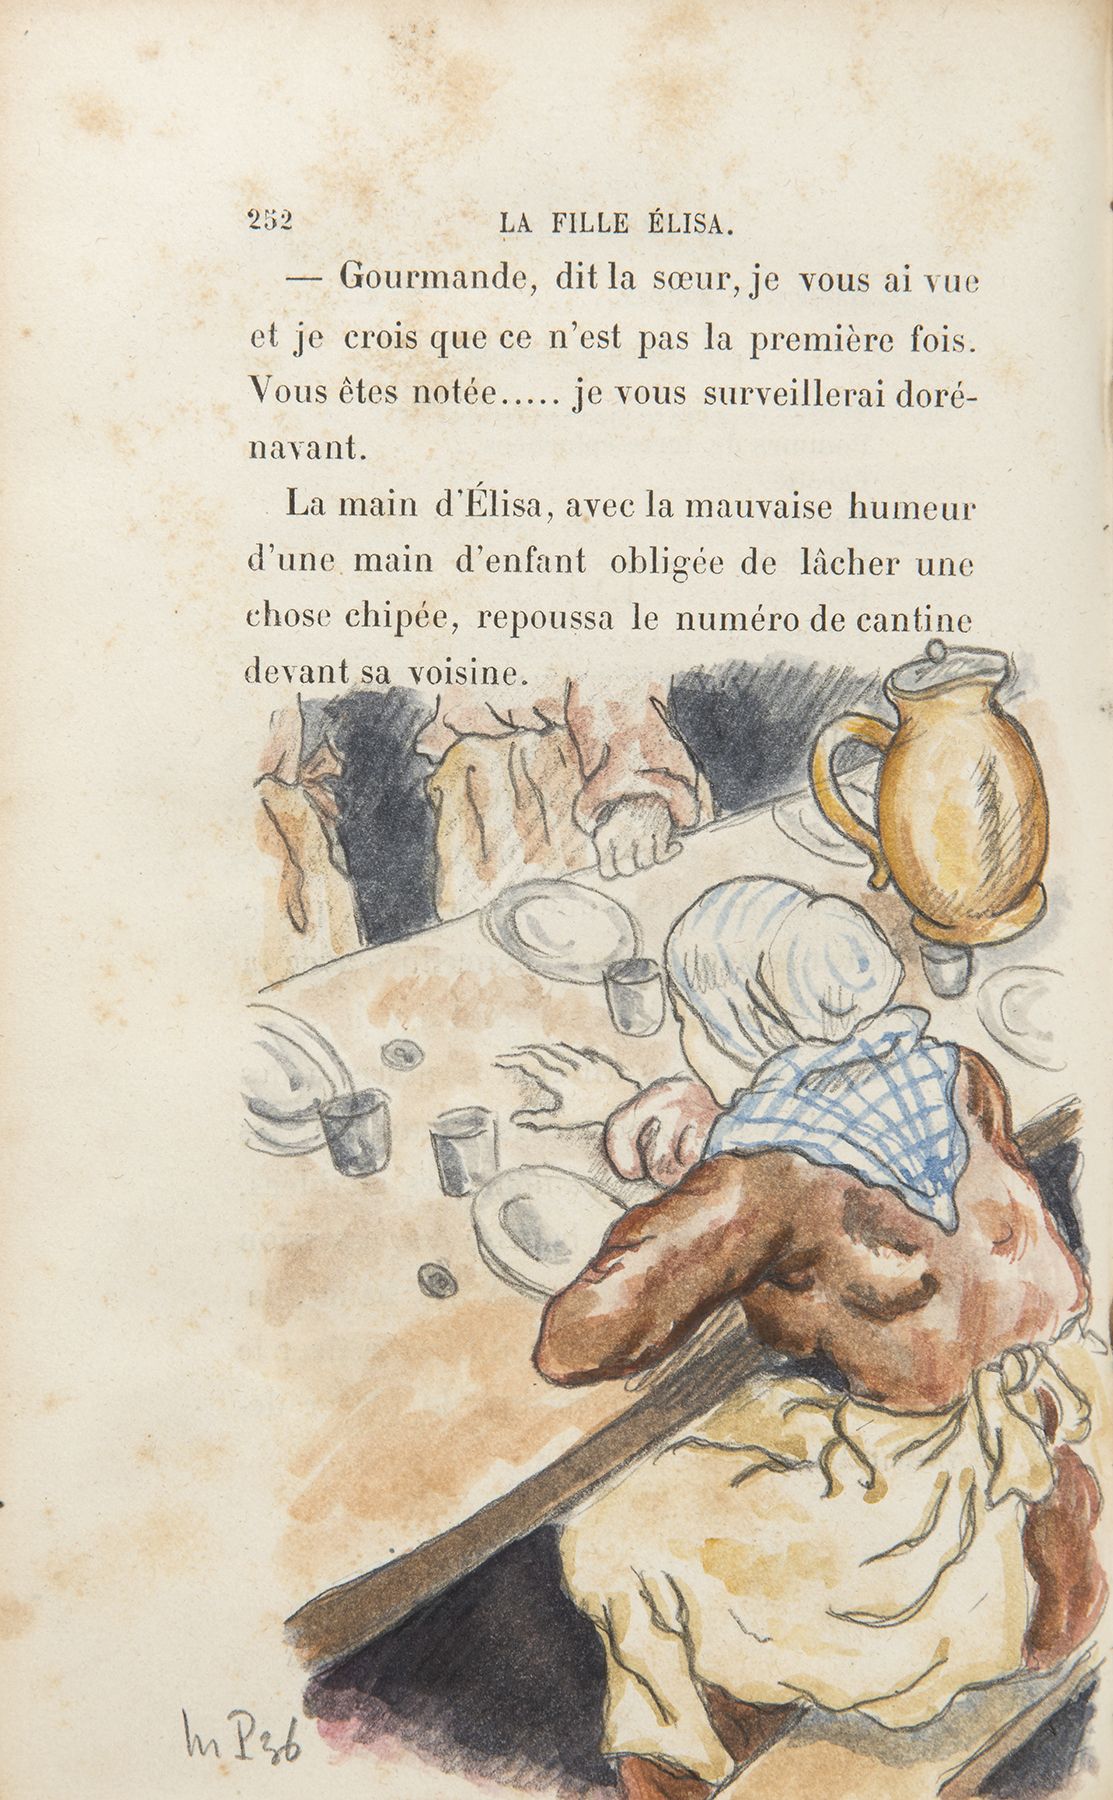 252 LA FILLE ÉLISA.
— Gourmande, dit la sœur, je vous ai vue
et je crois que ce n'est pas la première fois.
Vous êtes notée..... je vous surveillerai doré-
navant.
La main d'Élisa, avec la mauvaise humeur
d'une main d'enfant obligée de lâcher une
chose chipée, repoussa le numéro de cantine
devant sa voisine.
m P 36